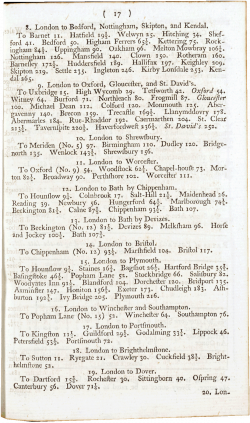 ( 17 )
8. London to Bedford, Nottingham, Skipton, and Kendal.
To Barnet 11. Hatfield 19½. Welwyn 25. Hitchin 34. Shef-
ford 41. Bedford 50. Higham Ferrers 65½. Kettering 75. Rock-
ingham 84½. Uppingham 90. Oakham 96. Melton Mowbray 106½.
Nottingham 126. Mansfield 140. Clown 150. Rotheram 160.
Barnsley 172½. Huddersfield 189. Hallifax 197. Keighley 209.
Skipton 219. Settle 235. Ingleton 246. Kirby Lonsdale 253. Ken-
dal 265.
9. London to Oxford, Gloucester, and St. David's.
To Uxbridge 15. High Wycomb 29. Tetsworth 42. Oxford 54.
Witney 64. Burford 71. Northleach 80. Frogmill 87. Gloucester
102. Michael Dean 112. Colford 120. Monmouth 125. Aber-
gavenny 140. Brecon 159. Trecastle 169½. Llanymddovry 178.
Abermarles 184. Rue-Rhadder 192. Caermarthen 204. St. Clair
213½. Tavernspite 220½. Haverfordwest 236½. St. David's 252.
10. London to Shrewsbury.
To Meriden (No. 5) 97. Birmingham 110. Dudley 120. Bridge-
north 135. Wenlock 143½. Shrewsbury 156.
11. London to Worcester.
To Oxford (No. 9) 54. Woodstock 62½. Chapel-house 73. Mor-
ton 82½. Broadway 90. Pershshore 102. Worcester 111.
12. London to Bath by Chippenham.
To Hounslow 9½. Colnbrook 17. Salt-Hill 21½. Maidenhead 26.
Reading 39. Newbery 56. Hungerford 64½. Marlborough 74½.
Beckington 81½. Calne 87½. Chippenham 93½. Bath 107.
13. London to Bath by Devizes.
To Beckington (No. 12) 81½. Devizes 89. Melksham 96. Horse
and Jockey 100½. Bath 107½.
14. London to Bristol.
To Chippenham (No. 12) 93½. Marshfield 104. Bristol 117.
15. London to Plymouth.
To Hounslow 9½. Staines 16½. Bagshot 26½. Hartford Bridge 35½.
Basingstoke 46½. Popham Lane 52. Stockbridge 66. Salisbury 82.
Woodyates Inn 91½. Blandford 104. Dorchester 120. Bridport 135.
Axminster 147. Honiton 156½. Exeter 173. Chudleigh 183. Ash-
burton 192½. Ivy Bridge 205. Plymouth 216.
16. London to Winchester and Southampton.
To Popham Lane (No. 15) 52. Winchester 64. Southampton 76.
17. London to Portsmouth.
To Kingston 12½. Guildford 29½. Godalming 33½. Lippock 46.
Petersfield 53½. Portsmouth 72.
18. London to Brighthelmstone.
To Sutton 11. Ryegate 21. Crawley 30. Cuckfield 38½. Bright-
helmstone 52.
19. London to Dover.
To Dartford 15½. Rochester 30. Sittingborn 40. Ospring 47.
Canterbury 56. Dover 71½.
20. Lon.